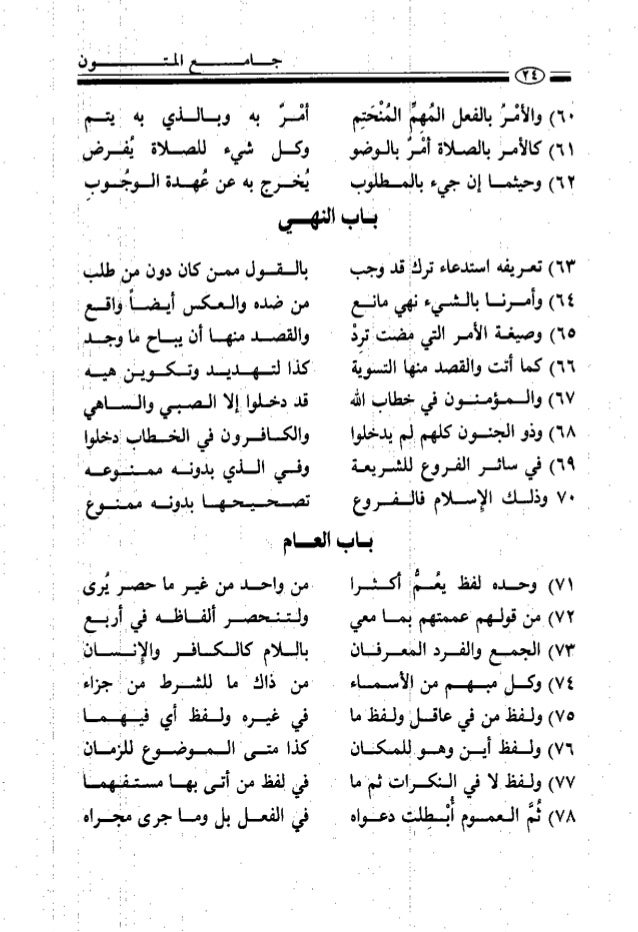 جامع المتون
٢٤
٦٠) والأمْرُ بالفعل المُهِمِّ المُنْحَتِم أمْرٌ به وبالذي به يتم
٦١) كالأمر بالصلاة أمْرٌ بالوضو وكل شيء للصلاة يُفرض
٦٢) وحيثما إن جيء بالمطلوب يُخرج به عن عُهدة الوجُوبِ
باب النهي
٦٣) تعريفه استدعاء ترك قد وجب بالقول ممن كان دون من طلب
٦٤) وأمرنا بالشيء نهي مانع من ضده والعكس أيضاً واقع
٦٥) وصيغة الأمر التي مضت تردْ والقصد منها أن يباح ما وجد
٦٦) كما أتت والقصد منها التسوية كذا لتهديد وتكوين هيه
٦٧) والمؤمنون في خطاب الله قد دخلوا إلا الصبي والساهي
٦٨) وذو الجنون كلهم لم يدخلوا والكافرون في الخطاب دخلوا
٦٩) في سائر الفروع للشريعة وفي الذي بدونه ممنوعه
٧٠ وذلك الإسلام فالفروع تصحيحها بدونه ممنوع
باب العام
٧١) وحده لفظ يعُمُّ أكثرا من واحد من غير ما حصر يُرى
٧٢) من قولهم عممتهم بما معي ولتنحصر ألفاظه في أربع
٧٣) الجمع والفرد المعرفان باللام كالكافر والإنسان
٧٤) وكل مبهم من الأسماء من ذاك ما للشرط من جزاء
٧٥) ولفظ من في عاقل ولفظ ما في غيره ولفظ أي فيهما
٧٦) ولفظ أين وهو للمكان كذا متى الموضوع للزمان
٧٧) ولفظ لا في النكرات ثم ما في لفظ من أتى بها مستفهما
٧٨) ثُمَّ العموم أُبْطِلت دعواه في الفعل بل وما جرى مجراه